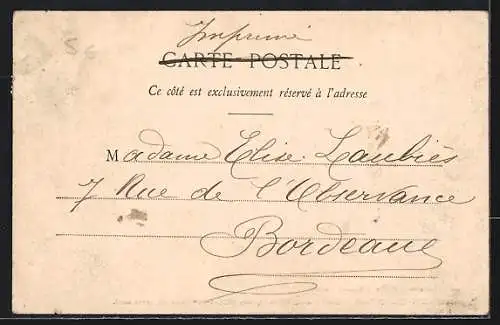 56
Imprimé
CARTE POSTALE
Ce côté est exclusivement réservé à l'adresse
Madame Elise Laubiès
7 Rue de l'Observance
Bordeaux